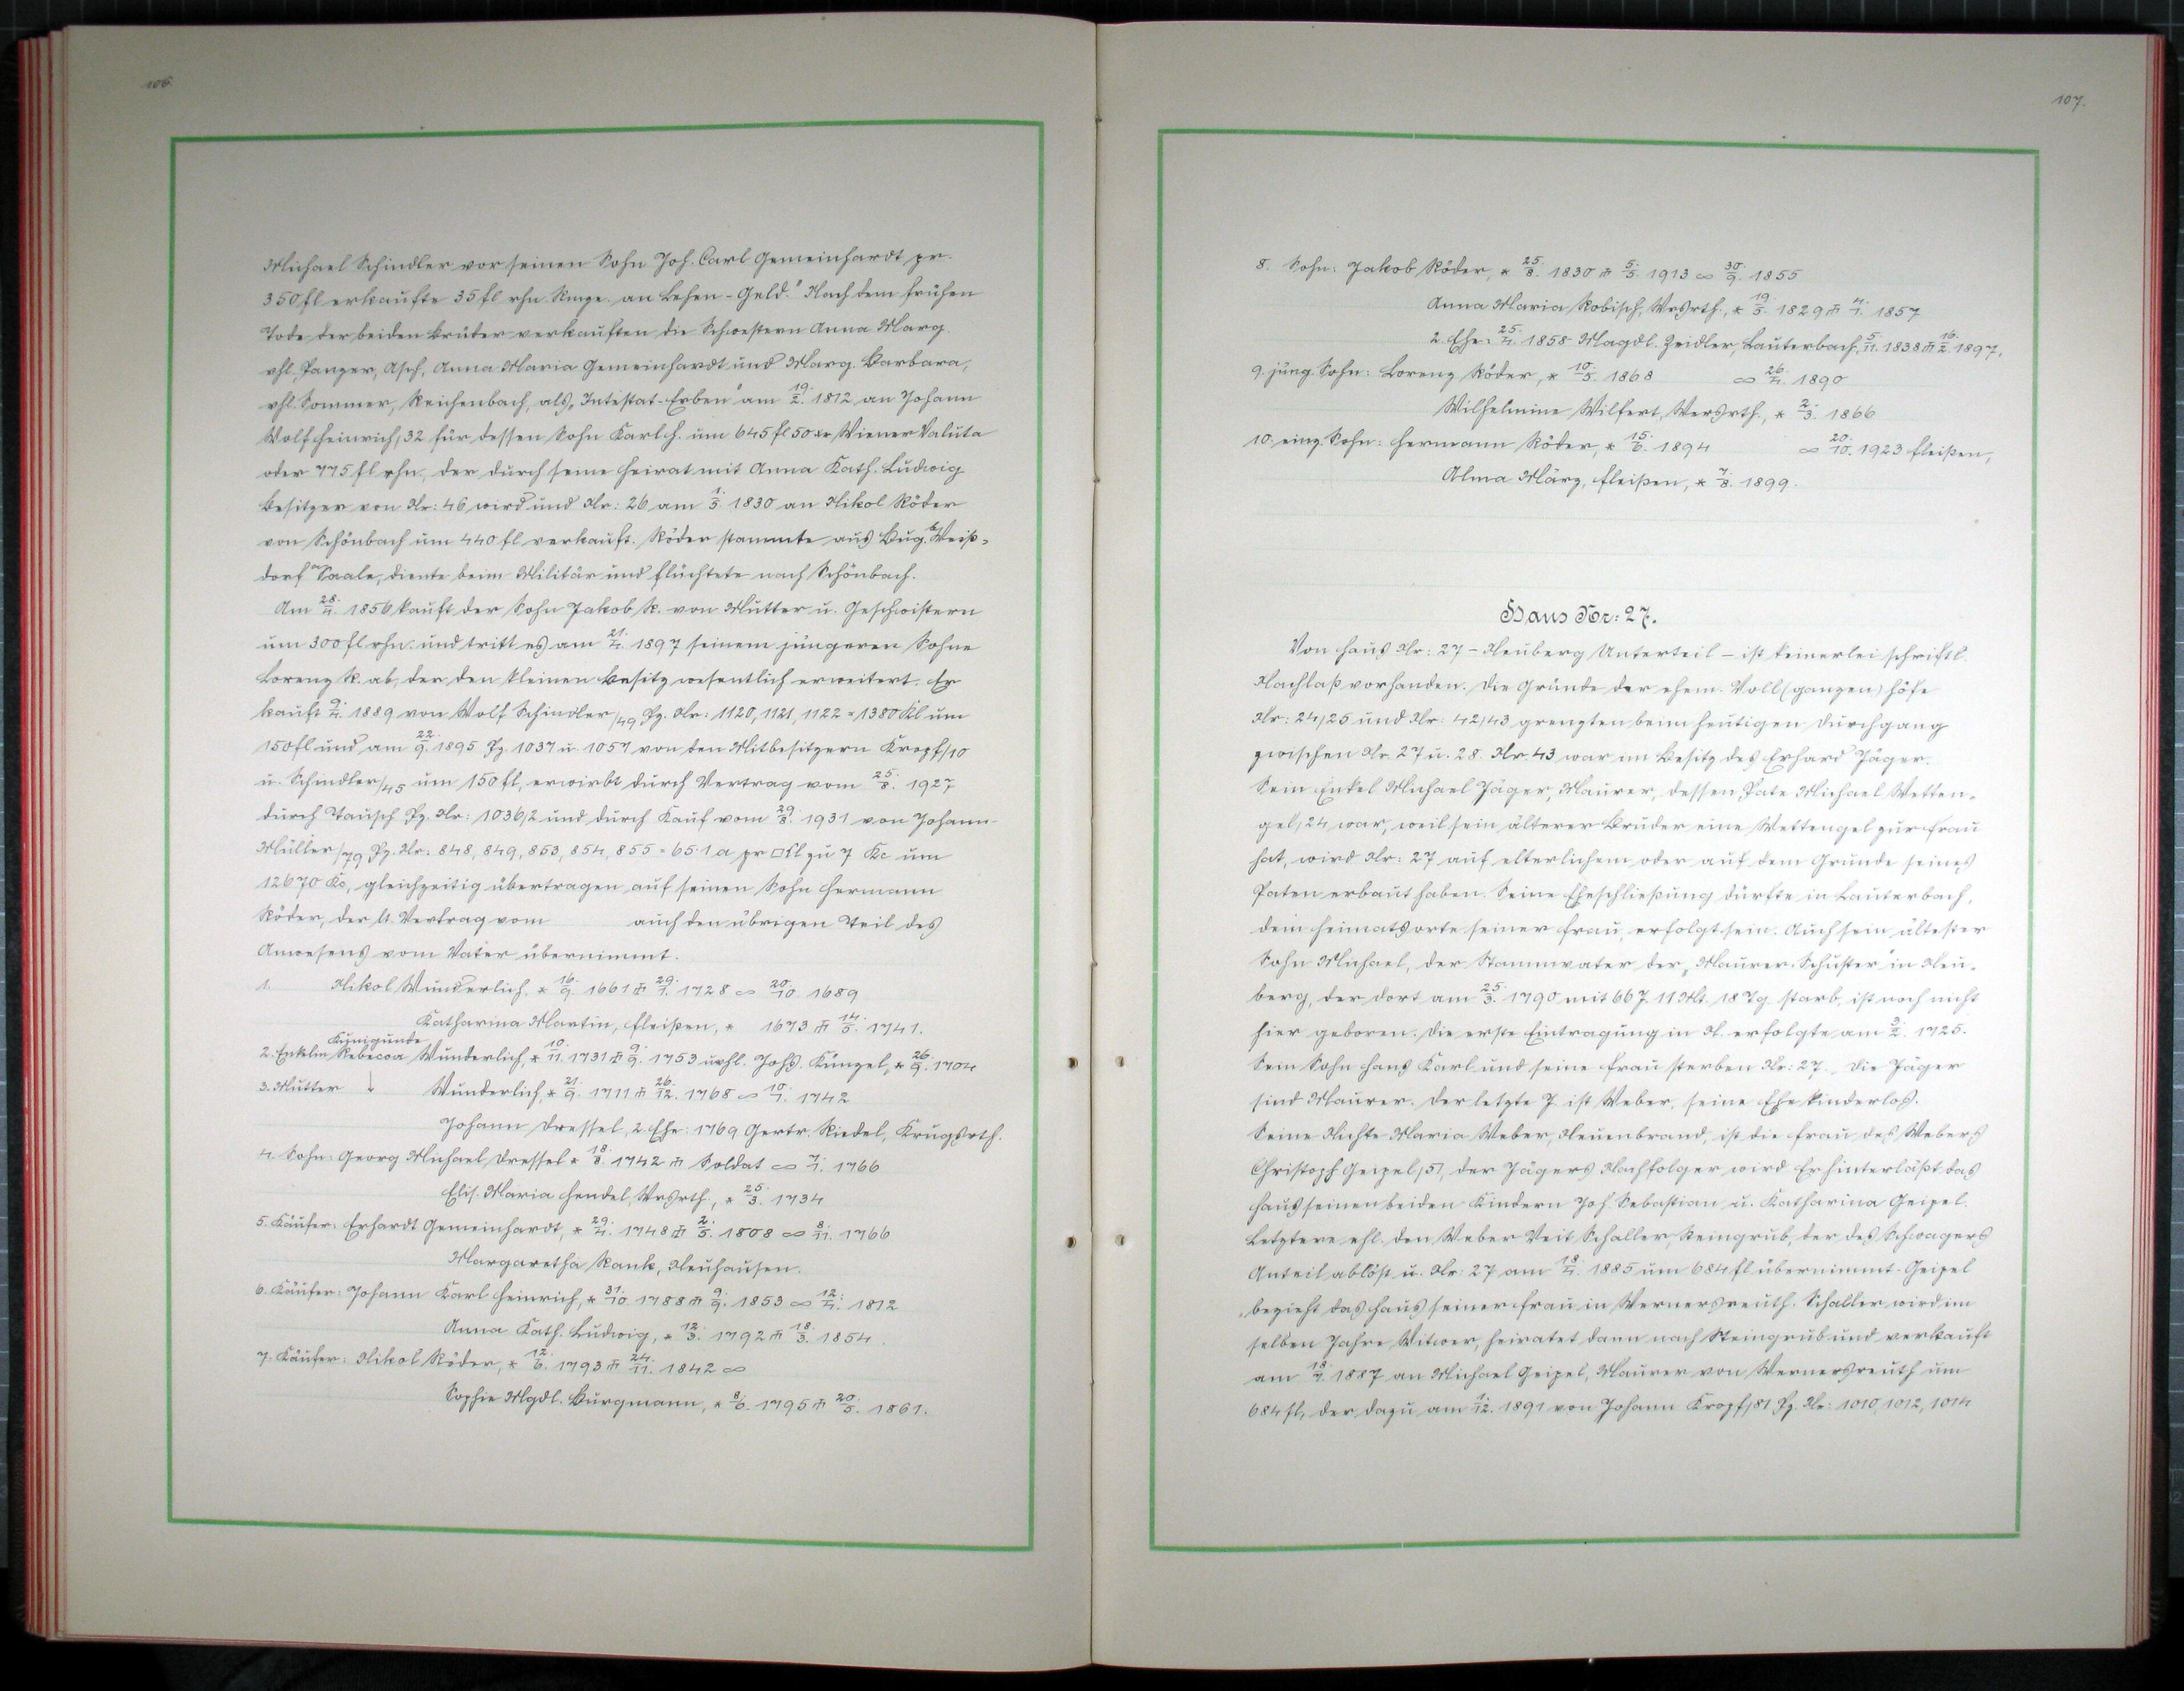 106.
Michael Schindler vor seinen Sohn Joh. Carl Gemeinhardt pr.
350 fl erkaufte 35 fl rhn. Rmge. an Lehen-Geld." Nach dem frühen
Tode der beiden Brüder verkauften die Schwestern Anna Marg.
vhl. Panzer, Asch, Anna Maria Gemeinhardt und Marg. Barbara,
vhl. Sommer, Reichenbach, als "Intestat-Erben" am 19./2. 1812 an Johann
Wolf Heinrich/32 für dessen Sohn Karl H. um 645 fl 50 xr Wiener Valuta
oder 775 fl rhn., der durch seine Heirat mit Anna Kath. Ludwig
Besitzer von Nr: 46 wird und Nr: 26 am 1./5. 1830 an Nikol Röder
von Schönbach um 440 fl verkauft. Röder stammte aus Bug b/ Weiß-
dorf a/ Saale, diente beim Militär und flüchtete nach Schönbach.
Am 28./4. 1856 kauft der Sohn Jakob R. von Mutter u. Geschwistern
um 300 fl rhn. und tritt es am 21./4. 1897 seinem jüngeren Sohne
Lorenz R. ab, der den kleinen Besitz wesentlich erweitert. Er
kauft 9./4. 1889 von Wolf Schindler/49 Pz. Nr: 1120, 1121, 1122 = 1380 Kl um
150 fl und am 22./9. 1895 Pz. 1037 u. 1057 von den Mitbesitzern Kropf/10
u. Schindler/45 um 150 fl, erwirbt durch Vertrag vom 25./8. 1927
durch Tausch Pz. Nr: 1036/2 und durch Kauf vom 29./8. 1931 von Johann
Müller/79 Pz. Nr: 848, 849, 853, 854, 855 = 65·1 a pr □Kl zu 7 Kc um
12670 Kc, gleichzeitig übertragen auf seinen Sohn Hermann
Röder, der lt. Vertrag vom auch den übrigen Teil des
Anwesens vom Vater übernimmt.
1. Nikol Wunderlich, * 16./9. 1661 ⚰ 29./1. 1728 ∞ 20./10. 1689
Katharina Martin, Fleißen, * 1673 ⚰ 14./5. 1741.
Kunigunde
2. Enklin Rebecca Wunderlich, * 10./11. 1731 ⚰ 9./9. 1753 uvhl. Johs. Künzel, * 26./9. 1704
3. Mutter ↓ Wunderlich, * 21./9. 1711 ⚰ 26./12. 1768 ∞ 10./1. 1742
Johann Dressel, 2. Ehe: 1769 Gertr. Riedel, Krugsrth.
4. Sohn: Georg Michael Dressel * 18./8. 1742 ⚰ Soldat ∞ 7./1. 1766
Elis. Maria Hendel, Wrsrth., * 25./3. 1734
5. Käufer: Erhardt Gemeinhardt, * 29./4. 1748 ⚰ 2./5. 1808 ∞ 8./11. 1766
Margaretha Rank, Neuhausen.
6. Käufer: Johann Karl Heinrich, * 31./10. 1788 ⚰ 9./9. 1853 ∞ 12./4. 1812
Anna Kath. Ludwig, * 12./3. 1792 ⚰ 18./3. 1854.
7. Käufer: Nikol Röder, * 12./6. 1793 ⚰ 24./11. 1842 ∞
Sophie Mgdl. Burgmann, * 8./6. 1795 ⚰ 20./5. 1861.
107.
8. Sohn: Jakob Röder, * 25./8. 1830 ⚰ 5./5. 1913 ∞ 30./9. 1855
Anna Maria Robisch, Wrsrth., * 19./5. 1829 ⚰ 4./1. 1857
2. Ehe: 25./4. 1858 Magdl. Zeidler, Lauterbach, 5./11. 1838 ⚰ 16./2. 1897,
9. jüng. Sohn: Lorenz Röder, * 10./5. 1868 ∞ 26./4. 1890
Wilhelmine Wilfert, Wersrth., * 2./3. 1866
10. einz. Sohn: Hermann Röder, * 15./6. 1894 ∞ 20./10. 1923 Fleißen,
Alma März, Fleißen, * 7./8. 1899.
Haus Nr: 27.
Von Haus Nr: 27 – Neuberg Unterteil – ist keinerlei schriftl.
Nachlaß vorhanden. Die Gründe der ehem. Voll (ganzen) höfe
Nr: 24/25 und Nr: 42/43 grenzten beim heutigen Durchgang
zwischen Nr. 27 u. 28. Nr. 43 war im Besitz des Erhard Jäger.
Sein Enkel Michael Jäger, Maurer, dessen Pate Michael Wetten-
gel/24 war, weil sein älterer Bruder eine Wettengel zur Frau
hat, wird Nr: 27 auf elterlichem oder auf dem Grunde seines
Paten erbaut haben. Seine Eheschließung dürfte in Lauterbach,
dem Heimatsorte seiner Frau, erfolgt sein. Auch sein ältester
Sohn Michael, der Stammvater der "Maurer-Schuster" in Neu-
berg, der dort am 25./3. 1790 mit 66 J. 11 Mt. 18 Tg. starb, ist noch nicht
hier geboren. Die erste Eintragung in N. erfolgte am 3./2. 1725.
Sein Sohn Hans Karl und seine Frau sterben Nr: 27. Die Jäger
sind Maurer. Der letzte J. ist Weber, seine Ehe kinderlos.
Seine Nichte Maria Weber, Neuenbrand, ist die Frau des Webers
Christoph Geipel/57, der Jägers Nachfolger wird. Er hinterläßt das
Haus seinen beiden Kindern Joh. Sebastian u. Katharina Geipel.
Letztere ehl. den Weber Veit Schaller, Steingrub, der des Schwagers
Anteil ablöst u. Nr: 27 am 18./4. 1885 um 684 fl übernimmt. Geipel
bezieht das Haus seiner Frau in Wernersreuth. Schaller wird im
selben Jahre Witwer, heiratet dann nach Steingrub und verkauft
am 18./7. 1887 an Michael Geipel, Maurer von Wernersreuth um
684 fl, der dazu am 1./12. 1891 von Johann Kropf/81 Pz. Nr: 1010, 1012, 1014